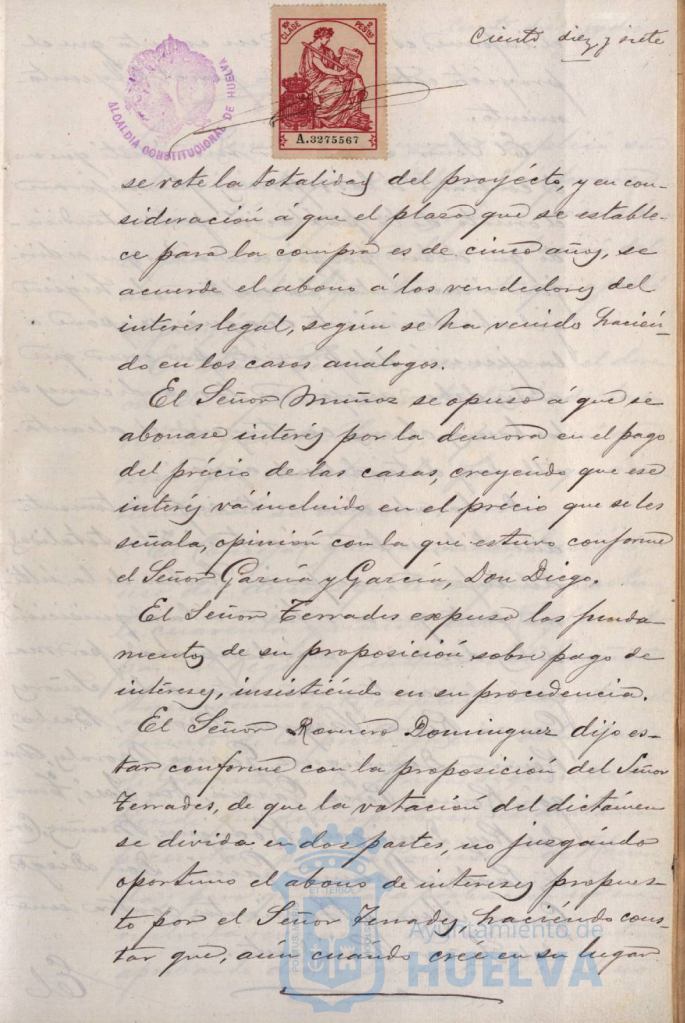 Ciento diez y siete
4ª CLASE
2 PESETAS
A.3275567
ALCALDIA CONSTITUCIONAL DE HUELVA
se vote la totalidad del proyécto, y en con-
sideración á que el plazo que se estable-
ce para la compra es de cinco años, se
acuerde el abono á los vendedores del
interés legal, según se ha venido hacién-
do en los casos análogos.
El Señor Muñoz se opuso á que se
abonase interés por la demora en el pago
del précio de las casas, creyéndo que ese
interés vá incluido en el précio que se les
señala, opinión con la que estuvo conforme
el Señor García y García, Don Diego.
El Señor Terrades expuso los funda-
mentos de su proposición sobre pago de
intereses, insistiéndo en su procedencia.
El Señor Romero Dominguez dijo es-
tar conforme con la proposición del Señor
Terrades, de que la votación del dictámen
se divida en dos partes, no juzgándo
oportuno el abono de intereses propues-
to por el Señor Terrades, haciéndo cons-
tar que, aún cuando creé en su lugar
Ayuntamiento de
HUELVA